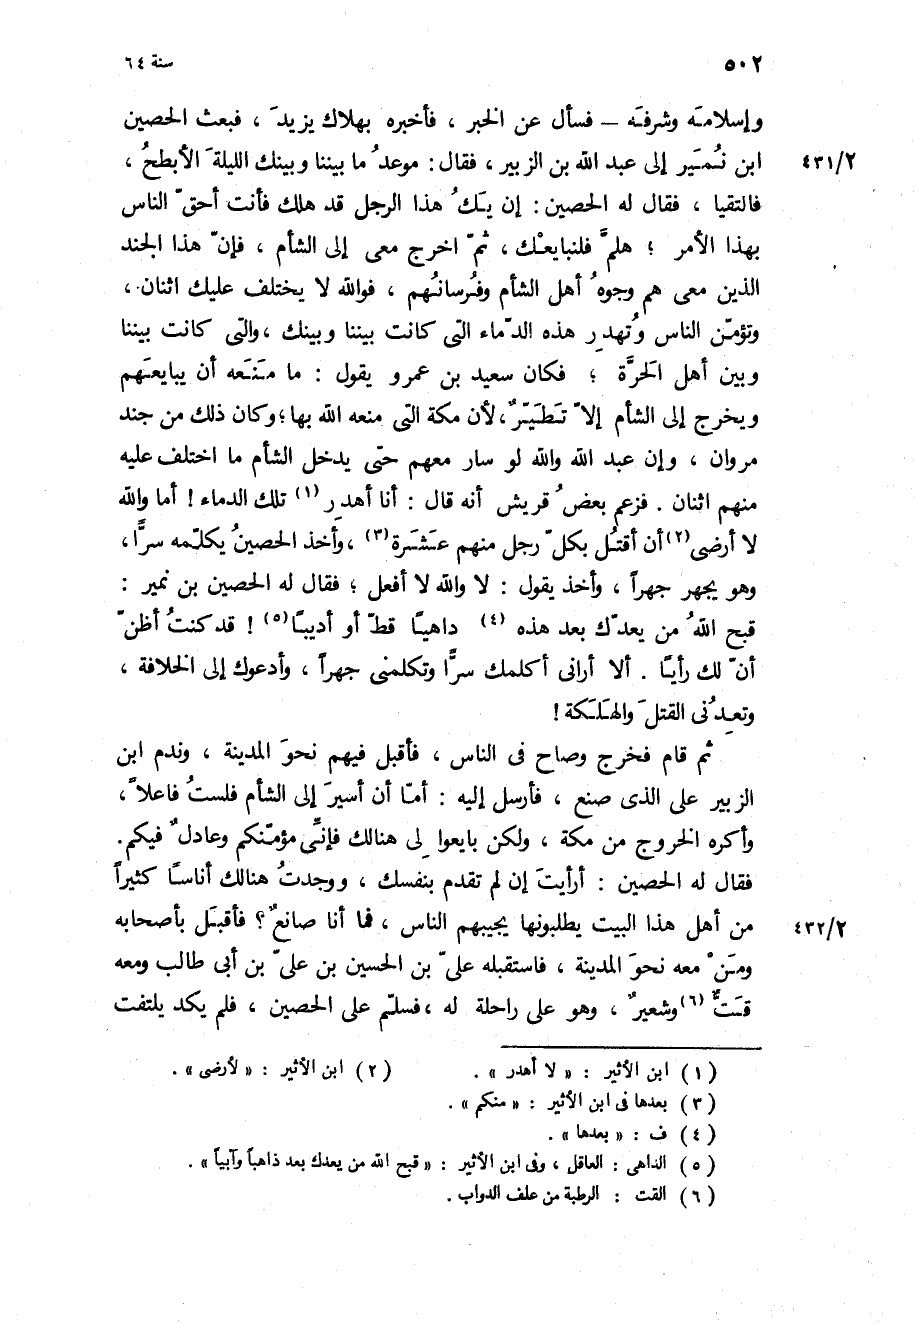 ٥٠٢
سنة ٦٤
وإسلامَه وشرفَه – فسأل عن الخبر ، فأخبره بهلاك يزيدَ ، فبعث الحصين
ابن نُمَير إلى عبد الله بن الزبير ، فقال : موعدُ ما بيننا وبينك الليلةَ الأبطحُ ،
٤٣١/٢
فالتقيا ، فقال له الحصين : إن يَكُ هذا الرجل قد هلك فأنت أحقّ الناس
بهذا الأمر ؛ هلمَّ فلنبايعْك ، ثمّ اخرج معى إلى الشأم ، فإنّ هذا الجند
الذين معى هم وجوهُ أهل الشأم وفُرسانُهم ، فوالله لا يختلف عليك اثنان ،
وتؤمّن الناس وتُهدِر هذه الدّماء التى كانت بيننا وبينك ، والتى كانت بيننا
وبين أهل الحَرَّة ؛ فكان سعيد بن عمرو يقول : ما مَنَعه أن يبايعَهم
ويخرج إلى الشأم إلاّ تَطَيّرٌ ، لأن مكة التى منعه الله بها ؛ وكان ذلك من جند
مروان ، وإن عبد الله والله لو سار معهم حتى يدخل الشأم ما اختلف عليه
منهم اثنان . فزعم بعضُ قريش أنه قال : أنا أهدِر (١) تلك الدماء ! أما والله
لا أرضى (٢) أن أقتُل بكلّ رجل منهم عَشَرة (٣) ، وأخذ الحصينُ يكلّمه سرًّا ،
وهو يجهر جهراً ، وأخذ يقول : لا والله لا أفعل ؛ فقال له الحصين بن نمير :
قبح اللهُ من يعدّك بعد هذه (٤) داهيًا قطّ أو أديبًا (٥) ! قد كنتُ أظنّ
أنّ لك رأيًا . ألا أرانى أكلمك سرًّا وتكلمنى جهراً ، وأدعوك إلى الخلافة ،
وتعِدُنى القتلَ والهَلَكة !
ثم قام فخرج وصاح فى الناس ، فأقبل فيهم نحوَ المدينة ، وندم ابن
الزبير على الذى صنع ، فأرسل إليه : أمّا أن أسيرَ إلى الشأم فلستُ فاعلاً ،
وأكره الخروج من مكة ، ولكن بايعوا لِى هنالك فإنِّى مؤمّنكم وعادلٌ فيكم .
فقال له الحصين : أرأيتَ إن لم تقدم بنفسك ، ووجدتُ هنالك أناسًا كثيراً
من أهل هذا البيت يطلبونها يجيبهم الناس ، فما أنا صانعٌ ؟ فأقبَل بأصحابه
٤٣٢/٢
ومَنْ معه نحوَ المدينة ، فاستقبله علىّ بن الحسين بن علىّ بن أبى طالب ومعه
قَتٌّ (٦) وشعيرٌ ، وهو على راحلة له ، فسلّم على الحصين ، فلم يكد يلتفت
(١) ابن الأثير : « لا أهدر » . (٢) ابن الأثير : « لأرضى » .
(٣) بعدها فى ابن الأثير : « منكم » .
(٤) ف : « بعدها » .
(٥) الداهى : العاقل ، وفى ابن الأثير : « قبح الله من يعدك بعد ذاهباً وآيباً » .
(٦) القت : الرطبة من علف الدواب .